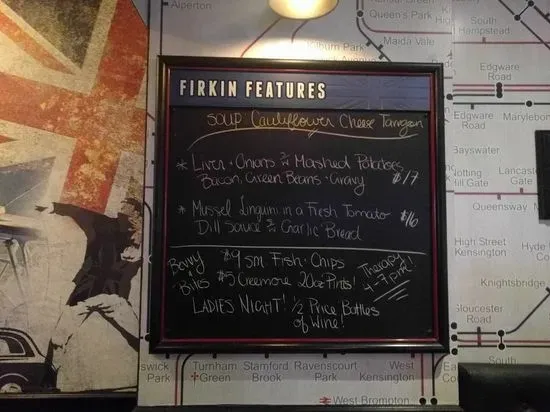 FIRKIN FEATURES
SOUP: Cauliflower Cheese Tarragon
* Liver + Onions Mashed Potatoes,
Bacon, Green Beans + Gravy $17
* Mussel Linguini in a Fresh Tomato
Dill Sauce & Garlic Bread $16
$9 sm Fish + Chips
Bites $5 Creemore 20oz Pints!
Therapy
4-7 pm!
LADIES NIGHT! 1/2 Price Bottles
of Wine!
Queen's Park
Kilburn Park
Maida Vale
South
Hampstead
Edgware
Road
Edgware
Road
Marylebone
Bayswater
Notting
Hill Gate
Lancaster
Gate
Queensway
High Street
Kensington
Hyde
Gloucester
Road
South
Park
Turnham
Green
Stamford
Brook
Ravenscourt
Park
West
Kensington
West Brompton